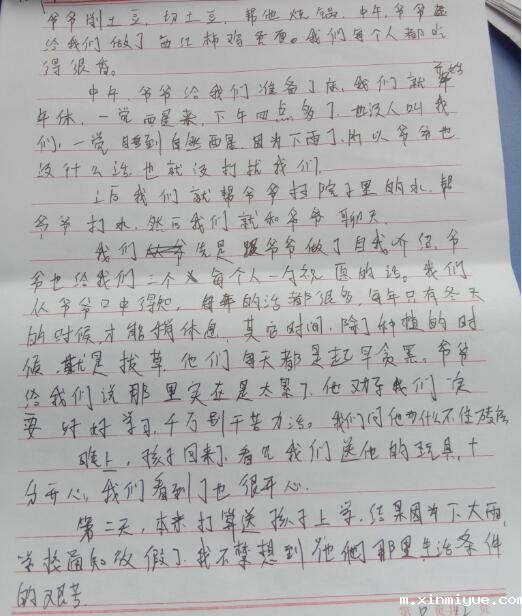 爷爷削土豆，切土豆，帮他烧锅，中午，爷爷
给我们做了西红柿鸡蛋面。我们每个人都吃
得很香。
中午，爷爷给我们准备了床，我们就开始
午休，一觉醒来，下午四点多了，也没人叫我
们，一觉睡到自然醒，因为下雨了，所以爷爷也
没什么活，也就没打扰我们。
之后我们就帮爷爷扫院子里的水，帮
爷爷打水，然后我们就和爷爷聊天
我们先是跟爷爷做了自我介绍，爷
爷也给我们三个人每个人一句祝愿的话。我们
从爷爷口中得知，每年的活都很多，每年只有冬天
的时候才能稍休息，其它时间，除了种植的时
候，就是拔草，他们每天都是起早贪黑。爷爷
给我们说那里实在是太累了，他劝我们一定
要好好学习，千万别干苦力活。我们问他为什么不住
晚上，孩子回来了，看见我们送他的玩具，十
分开心，我们看到了也很开心。
第二天，本来打算送孩子上学，结果因为下大雨，
学校通知放假了，我不禁想到他们那里生活条件
的艰苦
m.xinmiyue.com